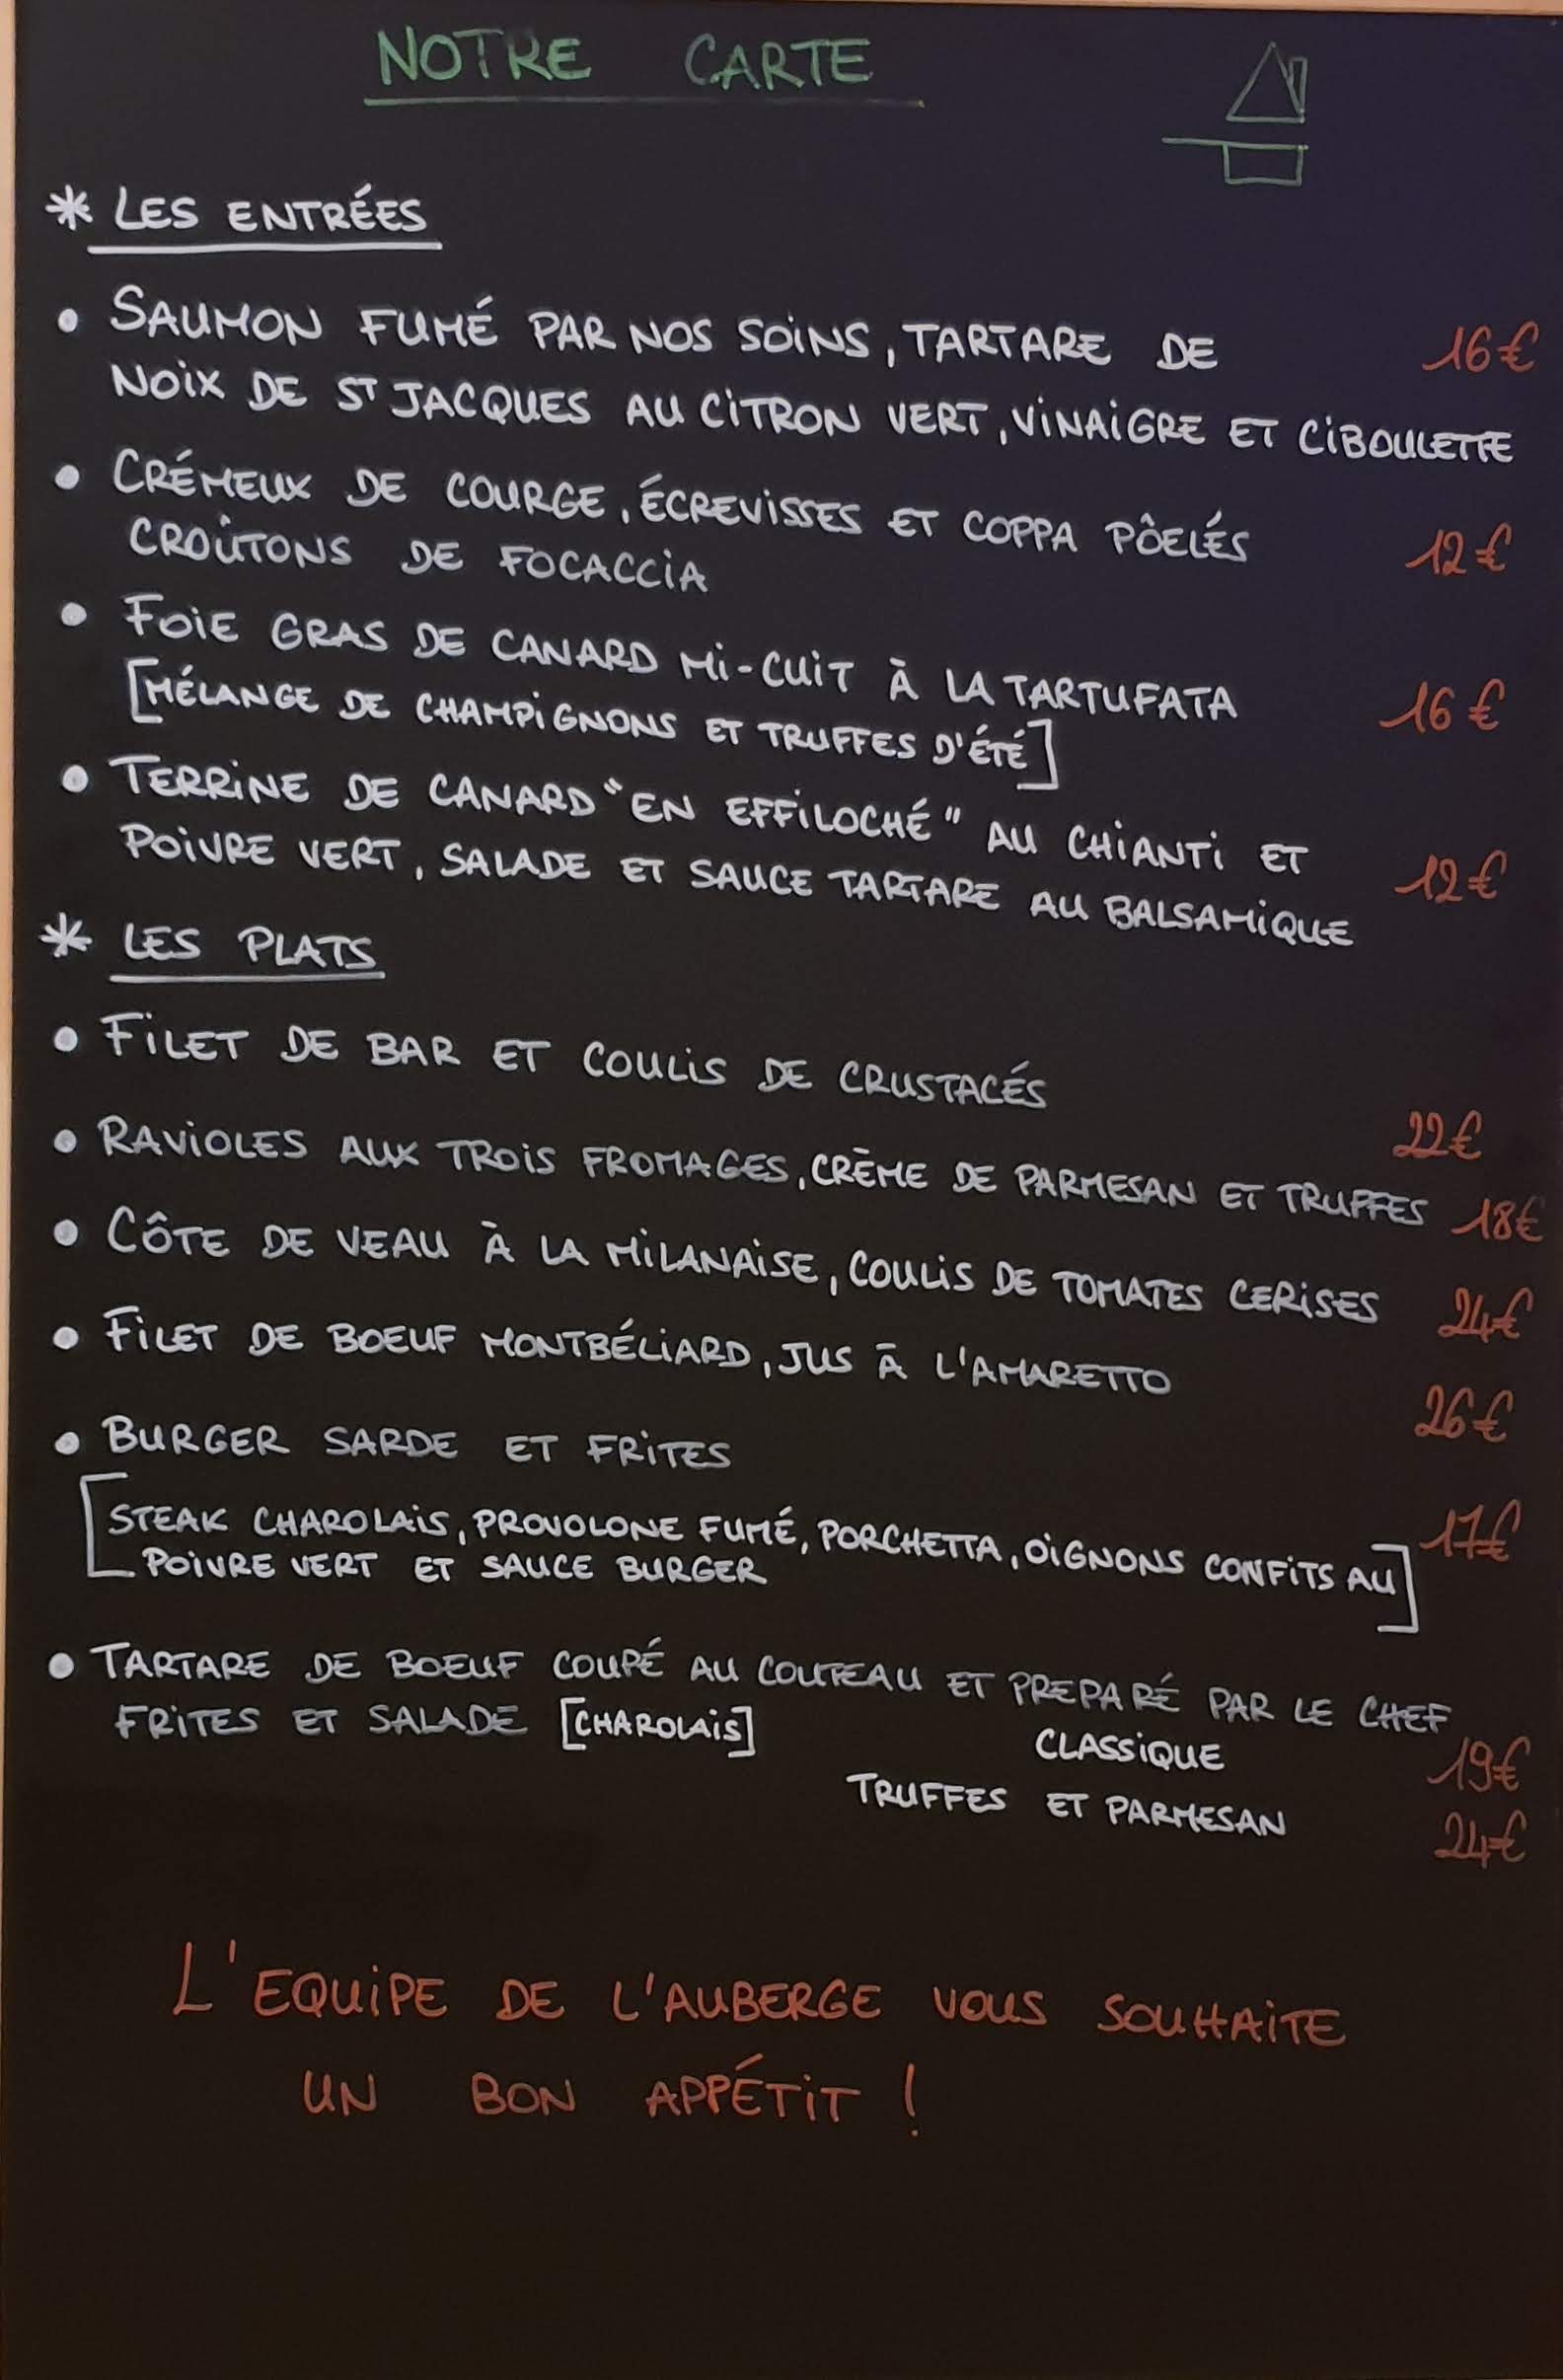 NOTRE CARTE
* LES ENTRÉES
• SAUMON FUMÉ PAR NOS SOINS, TARTARE DE 16€
NOIX DE ST JACQUES AU CITRON VERT, VINAIGRE ET CIBOULETTE
• CRÉMEUX DE COURGE, ÉCREVISSES ET COPPA PÔELÉS 12€
CROÛTONS DE FOCACCIA
• FOIE GRAS DE CANARD MI-CUIT À LA TARTUFATA 16€
[MÉLANGE DE CHAMPIGNONS ET TRUFFES D'ÉTÉ]
• TERRINE DE CANARD "EN EFFILOCHÉ" AU CHIANTI ET 12€
POIVRE VERT, SALADE ET SAUCE TARTARE AU BALSAMIQUE
* LES PLATS
• FILET DE BAR ET COULIS DE CRUSTACÉS 22€
• RAVIOLES AUX TROIS FROMAGES, CRÈME DE PARMESAN ET TRUFFES 18€
• CÔTE DE VEAU À LA MILANAISE, COULIS DE TOMATES CERISES 24€
• FILET DE BOEUF MONTBÉLIARD, JUS À L'AMARETTO 26€
• BURGER SARDE ET FRITES
[STEAK CHAROLAIS, PROVOLONE FUMÉ, PORCHETTA, OIGNONS CONFITS AU 17€
POIVRE VERT ET SAUCE BURGER]
• TARTARE DE BOEUF COUPÉ AU COUTEAU ET PREPARÉ PAR LE CHEF
FRITES ET SALADE [CHAROLAIS] CLASSIQUE 19€
TRUFFES ET PARMESAN 24€
L'EQUIPE DE L'AUBERGE VOUS SOUHAITE
UN BON APPÉTIT !